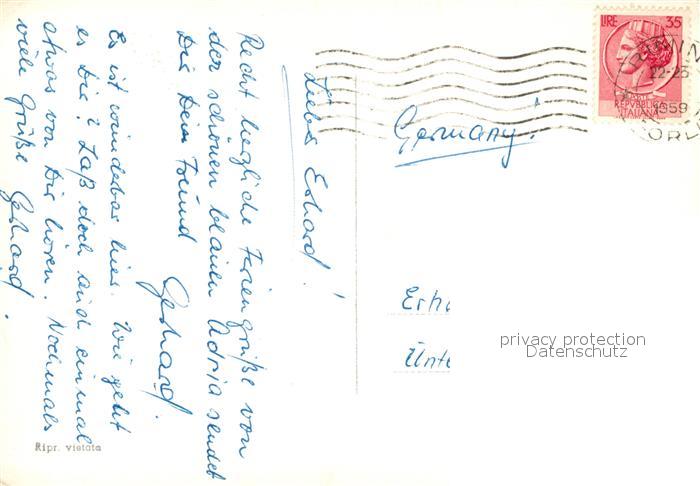 Lieber Erhard!
Recht herzliche Feriengrüße von
der schönen blauen Adria sendet
Dir Dein Freund Gerhard.
Es ist wunderbar hier. Wie geht
es Dir? Laß doch auch einmal
etwas von Dir hören. Nochmals
viele Grüße Gerhard.
Ripr. vietata
LIRE 35
REPVBBLICA
ITALIANA
22-23
1959
Germany!
Erh
Unte
privacy protection
Datenschutz